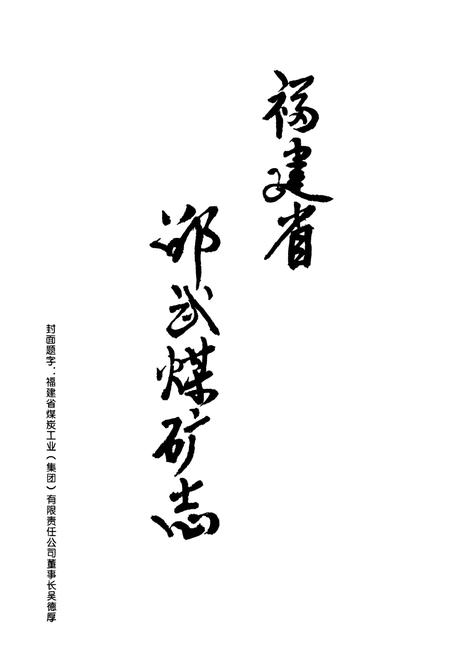 福建省
邵武煤矿志
封面题字：福建省煤炭工业（集团）有限责任公司董事长吴德厚